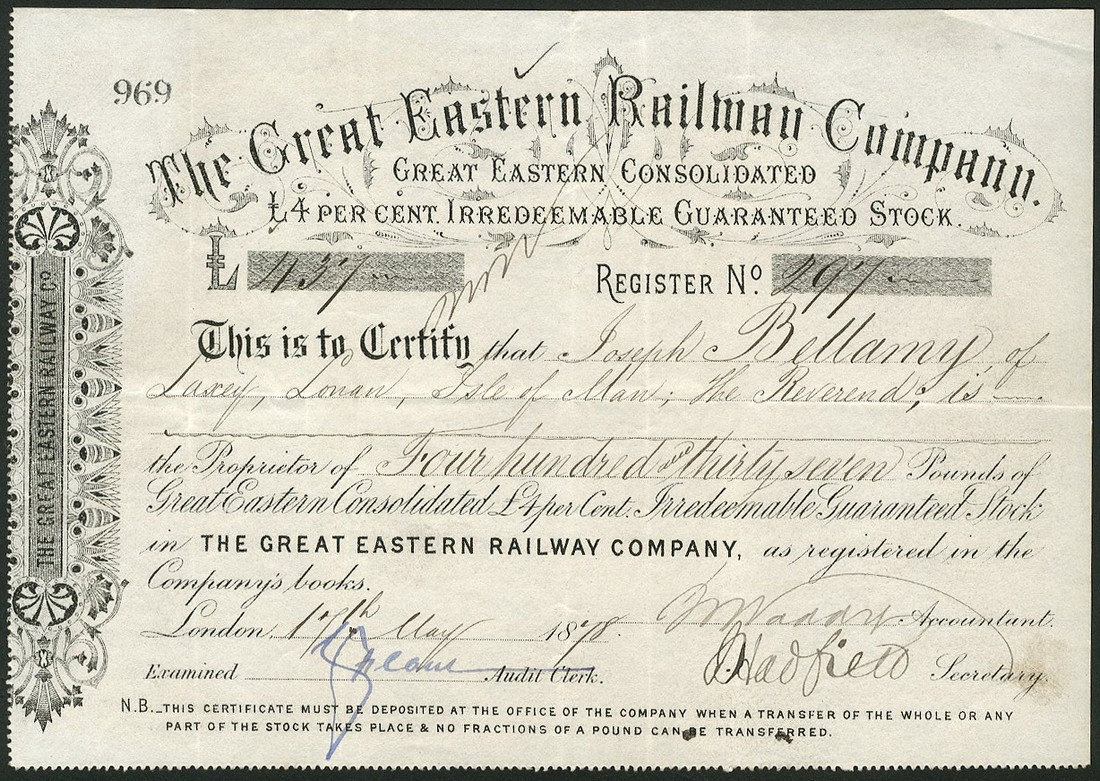 969
The Great Eastern Railway Company.
GREAT EASTERN CONSOLIDATED
£4 PER CENT. IRREDEEMABLE GUARANTEED STOCK.
£ 437 REGISTER No. 297
This is to Certify that Joseph Bellamy, of
Laxey, Lonan, Isle of Man; the Reverend; is
the Proprietor of Four hundred and thirty seven Pounds of
Great Eastern Consolidated £4 per Cent. Irredeemable Guaranteed Stock
in THE GREAT EASTERN RAILWAY COMPANY, as registered in the
Company's books.
London, 17th May 1878. Accountant.
Hadfield Secretary.
Examined Audit Clerk.
N.B._THIS CERTIFICATE MUST BE DEPOSITED AT THE OFFICE OF THE COMPANY WHEN A TRANSFER OF THE WHOLE OR ANY
PART OF THE STOCK TAKES PLACE & NO FRACTIONS OF A POUND CAN BE TRANSFERRED.
THE GREAT EASTERN RAILWAY CO.